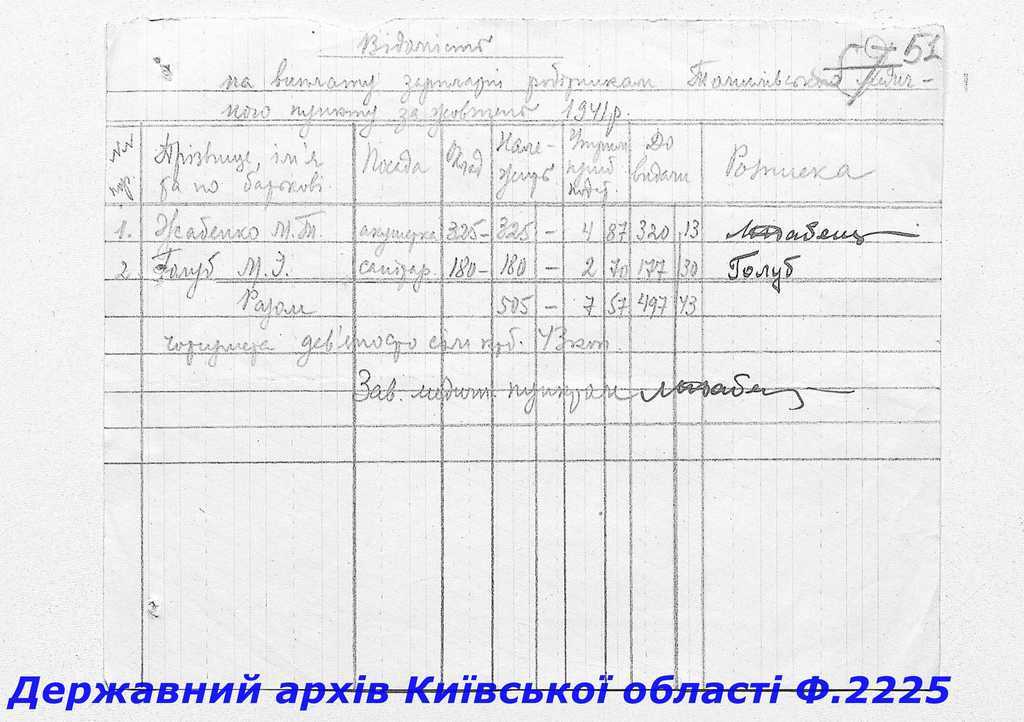 57 51
Відомість
на виплату зарплатні робітникам Томилівського медич-
ного пункту за жовтень 1941 р.
№№ п/р. Прізвище, ім'я та по батькові. Посада Оклад Нале-жить Утрим. приб. подат. До видачи Розписка
1. Жабенко М.Т. акушерка 325- 325 - 4 87 320 13
2 Голуб М.Э. санітар. 180- 180 - 2 70 177 30 Голуб
Разом 505 - 7 57 497 43
чотириста дев'яносто сім крб. 43 коп.
Зав. медичн. пунктом
Державний архів Київської області Ф.2225